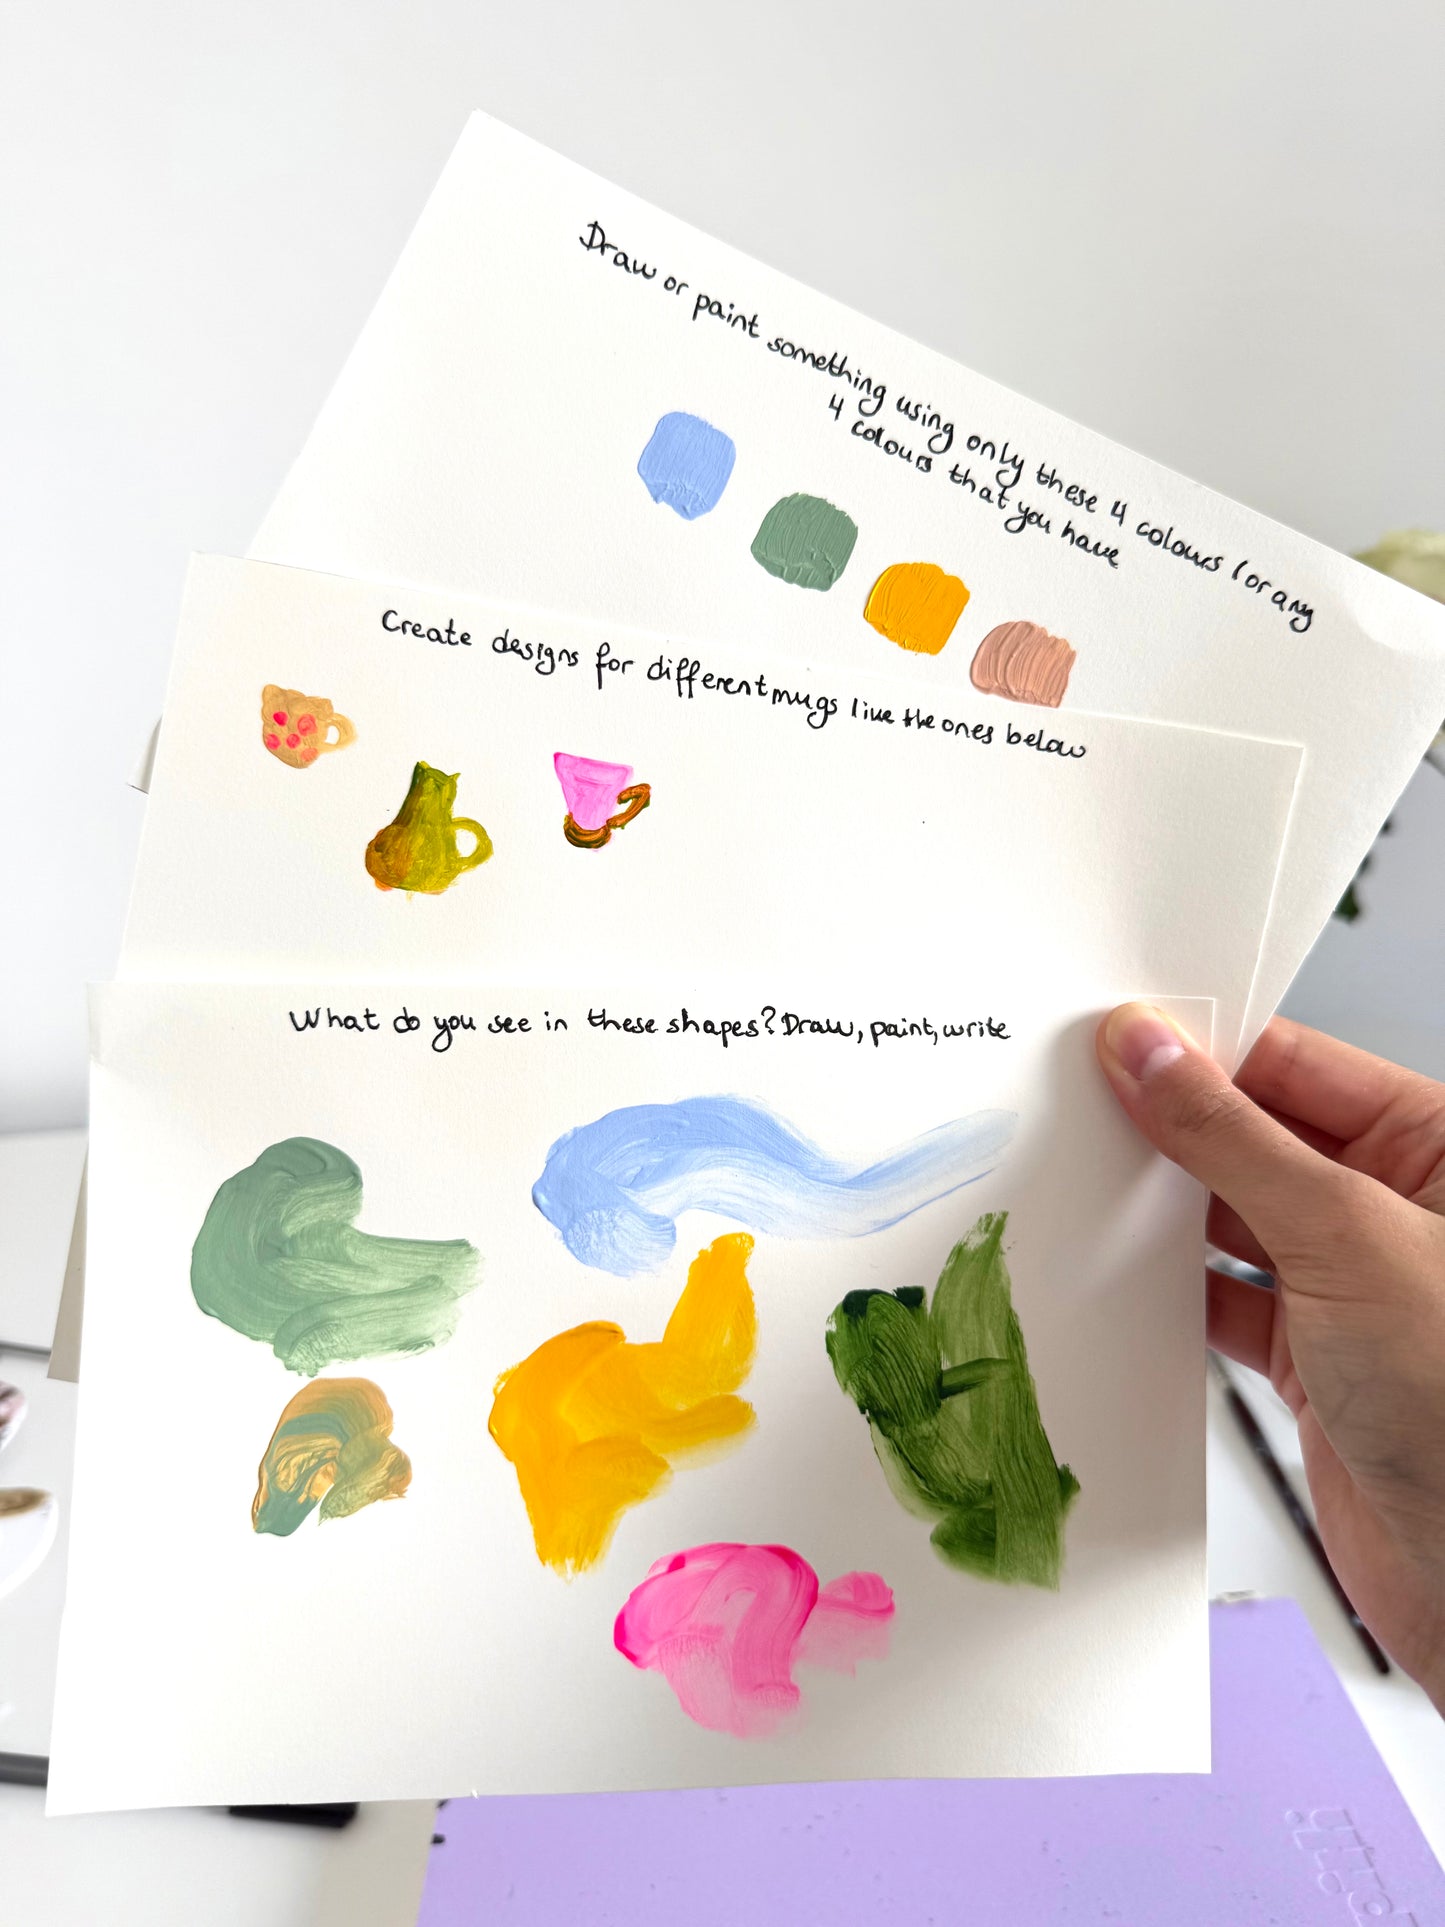 Draw or paint something using only these 4 colours (or any
4 colours that you have
Create designs for different mugs like the ones below
What do you see in these shapes? Draw, paint, write